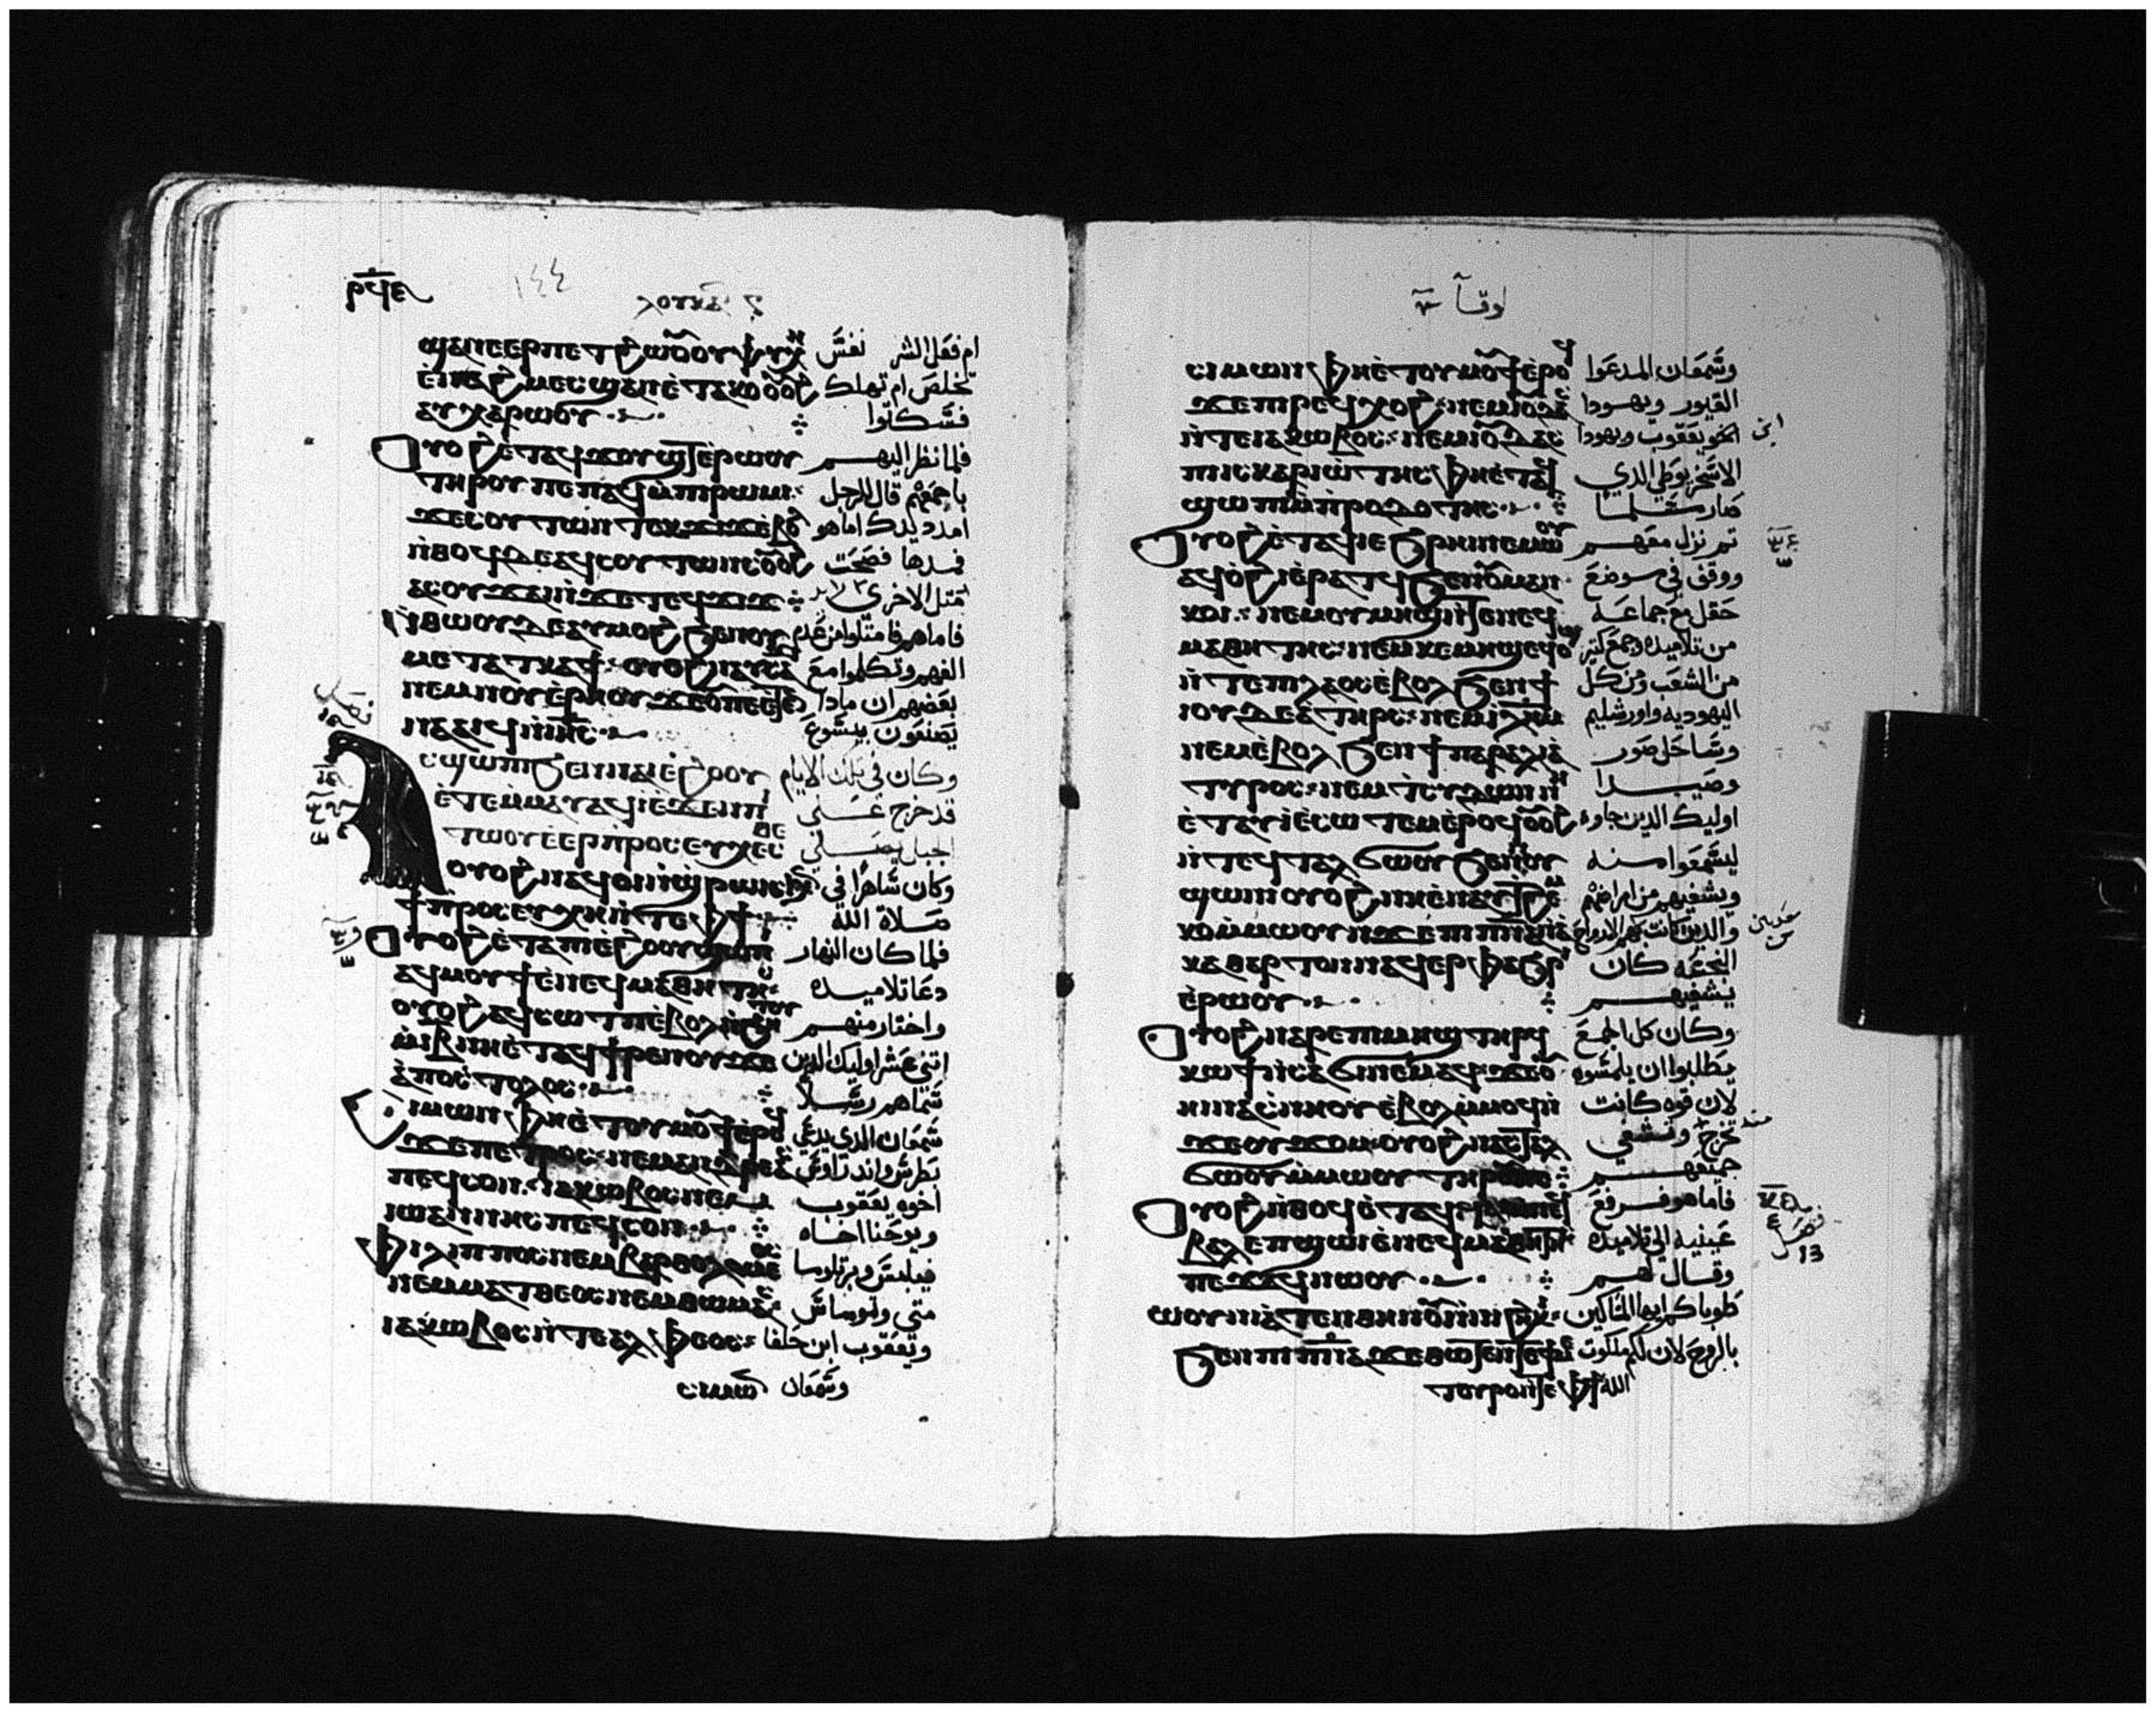 ⲣϥⲉ ١٤٤ ⲗⲟⲩⲕⲁ
ϣⲁⲛ ⲉⲉⲣⲡⲉⲧϩⲱⲟⲩ ⲟⲩⲯⲩⲭⲏ ام فعل الشر نفس
ⲉⲛⲁϩⲙⲉⲥ ϣⲁⲛ ⲉⲧⲁⲕⲟⲥ تخلص ام تهلك
ⲁⲩⲭⲁⲣⲱⲟⲩ فسكتوا
ⲟⲩⲟϩ ⲉⲧⲁϥϫⲟⲩϣⲧ ⲉⲣⲱⲟⲩ فلما نظر اليهم
ⲧⲏⲣⲟⲩ ⲡⲉϫⲁϥ ⲙⲡⲓⲣⲱⲙⲓ باجمعهم قال للرجل
ϫⲉ ⲥⲟⲩⲧⲱⲛ ⲧⲉⲕϫⲓϫ ⲉⲃⲟⲗ امدد يدك اما هو
ⲛⲑⲟϥ ⲇⲉ ⲁϥⲥⲟⲩⲧⲱⲛⲥ ⲟⲩⲟϩ فمدها فصحت
ⲁⲥⲟⲩϫⲁⲓ ⲛϫⲉ ⲧⲉϥϫⲓϫ مثل الاخرى
ⲛⲑⲱⲟⲩ ⲇⲉ ⲁⲩⲙⲟϩ ϧⲉⲛ ⲟⲩ فاما هم فامتلوا من عدم
ⲙⲉⲧⲁⲧⲕⲁϯ ⲟⲩⲟϩ ⲛⲁⲩⲥⲁϫⲓ الفهم وتكلموا مع
ⲛⲉⲙ ⲛⲟⲩⲉⲣⲏⲟⲩ ϫⲉ ⲟⲩ ⲡⲉⲧⲉ بعضهم ان مادا
ⲛⲁⲁⲓϥ ⲛⲓⲏⲥ يصنعون بيسوع
ⲥϣⲱⲡⲓ ϧⲉⲛ ⲛⲁⲓⲉϩⲟⲟⲩ وكان في تلك الايام
ⲉⲧⲉⲙⲙⲁⲩ ⲁϥⲓ ⲉϫⲉⲛ ⲡⲓ قد خرج
ⲧⲱⲟⲩ ⲉⲉⲣⲡⲣⲟⲥⲉⲩⲭⲉⲥⲑⲉ اجبل يصلي
ⲟⲩⲟϩ ⲛⲁϥⲟⲓ ⲛϣⲣⲱⲓⲥ ϧⲉⲛ وكان ساهرا في
ϯⲡⲣⲟⲥⲉⲩⲭⲏ ⲛⲧⲉ ⲫϯ صلاة الله
ⲟⲩⲟϩ ⲉⲧⲁ ⲡⲓⲉϩⲟⲟⲩ ϣⲱⲡⲓ فلما كان النهار
ⲁϥⲙⲟⲩϯ ⲉⲛⲉϥⲙⲁⲑⲏⲧⲏⲥ دعا تلاميده
ⲟⲩⲟϩ ⲁϥⲥⲱⲧⲡ ⲉⲃⲟⲗ ⲛϧⲏⲧⲟⲩ واختار منهم
ⲙⲓⲃ ⲛⲏ ⲉⲧⲁϥϯⲣⲉⲛⲟⲩ ϫⲉ اتني عشر اوليك الدين
ⲁⲡⲟⲥⲧⲟⲗⲟⲥ سماهم رسلا
ⲥⲓⲙⲱⲛ ⲫⲏ ⲉⲧⲟⲩⲙⲟⲩϯ ⲉⲣⲟϥ سمعان الدي يدعي
ϫⲉ ⲡⲉⲧⲣⲟⲥ ⲛⲉⲙ ⲁⲛⲇⲣⲉⲁⲥ بطرس واندراوس
ⲡⲉϥⲥⲟⲛ ⲓⲁⲕⲱⲃⲟⲥ ⲛⲉⲙ اخوه يعقوب
ⲓⲱⲁⲛⲛⲏⲥ ⲡⲉϥⲥⲟⲛ ويوحنا اخاه
ⲫⲓⲗⲓⲡⲡⲟⲥ ⲛⲉⲙ ⲃⲁⲣⲑⲟⲗⲟⲙⲉⲟⲥ فيلبس وبرتلوما
ⲛⲉⲙ ⲙⲁⲧⲑⲉⲟⲥ ⲛⲉⲙ ⲑⲱⲙⲁⲥ متى وتوماس
ⲓⲁⲕⲱⲃⲟⲥ ⲛⲧⲉ ⲁⲗⲫⲉⲟⲥ ويعقوب ابن حلفا
ⲥⲓⲙⲱⲛ وسمعان
لوقا
ⲥⲓⲙⲱⲛ ⲫⲏ ⲉⲧⲟⲩⲙⲟⲩϯ ⲉⲣⲟϥ وسمعان المدعوا
ϫⲉ ⲡⲓⲣⲉϥⲭⲟϩ ⲛⲉⲙ ⲓⲟⲩⲇⲁ الغيور ويهودا
ⲛⲧⲉ ⲓⲁⲕⲱⲃⲟⲥ ⲛⲉⲙ ⲓⲟⲩⲇⲁⲥ اخو يعقوب ويهودا ابن
ⲡⲓⲥⲕⲁⲣⲓⲱⲧⲏⲥ ⲫⲏ ⲉⲧⲁϥ الاسخريوطي الدي
ϣⲱⲡⲓ ⲙⲡⲣⲟⲇⲟⲧⲏⲥ صار مسلما
ⲟⲩⲟϩ ⲉⲧⲁϥⲓ ⲉϧⲣⲏⲓ ⲛⲉⲙⲱⲟⲩ تم نزل معهم
ⲁϥⲟϩⲓ ⲉⲣⲁⲧϥ ϧⲉⲛ ⲟⲩⲙⲁ ⲛ ووقف في موضع
ⲕⲟⲓ ⲛⲉⲙ ⲟⲩⲙⲏϣ ⲛⲧⲉ ⲛⲉϥ حقل مع جماعة
ⲙⲁⲑⲏⲧⲏⲥ ⲛⲉⲙ ⲕⲉⲙⲏϣ ⲉϥⲟϣ من تلاميده وجمع كتير
ⲛⲧⲉ ⲡⲓⲗⲁⲟⲥ ⲉⲃⲟⲗ ϧⲉⲛ ϯ من الشعب ومن كل
ⲓⲟⲩⲇⲉⲁ ⲧⲏⲣⲥ ⲛⲉⲙ ⲓⲗⲏⲙ اليهوديه واورشليم
ⲛⲉⲙ ⲉⲃⲟⲗ ϧⲉⲛ ϯⲡⲁⲣⲁⲗⲓⲁ وساحل صور
ⲧⲩⲣⲟⲥ ⲛⲉⲙ ⲧⲥⲩⲇⲱⲛ ⲛⲏ وصيدا
ⲉⲧⲁⲩⲓ ⲉⲥⲱⲧⲉⲙ ⲉⲣⲟϥ ⲟⲩⲟϩ اوليك الدين جاوء
ⲛⲧⲉϥⲧⲁⲗϭⲱⲟⲩ ϧⲉⲛ ⲛⲟⲩ ليسمعوا منه
ϣⲱⲛⲓ ⲟⲩⲟϩ ⲛⲏ ⲉⲛⲁⲩϯϩⲉⲙ ويشفيهم من امراضهم
ⲕⲟ ⲙⲙⲱⲟⲩ ⲛϫⲉ ⲡⲓⲡⲛⲁ ⲛⲁ والدين كانت بهم الارواح
ⲕⲁⲑⲁⲣⲧⲟⲛ ⲛⲁϥⲉⲣⲫⲁϧⲣⲓ النجسه كان
ⲉⲣⲱⲟⲩ يشفيهم
ⲟⲩⲟϩ ⲛⲁⲣⲉ ⲡⲓⲙⲏϣ ⲧⲏⲣϥ وكان كل الجمع
ⲕⲱϯ ⲛⲥⲁ ϭⲓ ⲛⲉⲙⲁϥ ϫⲉ ⲟⲩ يطلبوا ان يلمسوه
ⲏⲓ ⲛⲁⲥⲛⲏⲟⲩ ⲉⲃⲟⲗ ⲙⲙⲟϥ ⲛ لان قوه كانت
ϫⲉ ⲟⲩϫⲟⲙ ⲟⲩⲟϩ ⲛⲁⲥⲧⲁⲗ تخرج منه وتشفي
ϭⲱⲟⲩ ⲙⲙⲱⲟⲩ ⲧⲏⲣⲟⲩ جميعهم
ⲟⲩⲟϩ ⲛⲑⲟϥ ⲉⲧⲁϥϥⲁⲓ ⲛⲛⲉϥ فاما هو فرفع
ⲃⲁⲗ ⲉⲡϣⲱⲓ ⲉⲛⲉϥⲙⲁⲑⲏⲧⲏⲥ عينيه الى تلاميده فصل 13
ⲡⲉϫⲁϥ ⲛⲱⲟⲩ وقال لهم
ⲱⲟⲩⲛⲓⲁⲧⲉⲛ ⲑⲏⲛⲟⲩ ⲛⲓϩⲏⲕⲓ طوباكم ايها المساكين
ϧⲉⲛ ⲡⲓⲡⲛⲁ ϫⲉ ⲑⲱⲧⲉⲛ ⲧⲉ ϯⲙⲉ بالروح لان لكم ملكوت
ⲧⲟⲩⲣⲟ ⲛⲧⲉ ⲫϯ الله